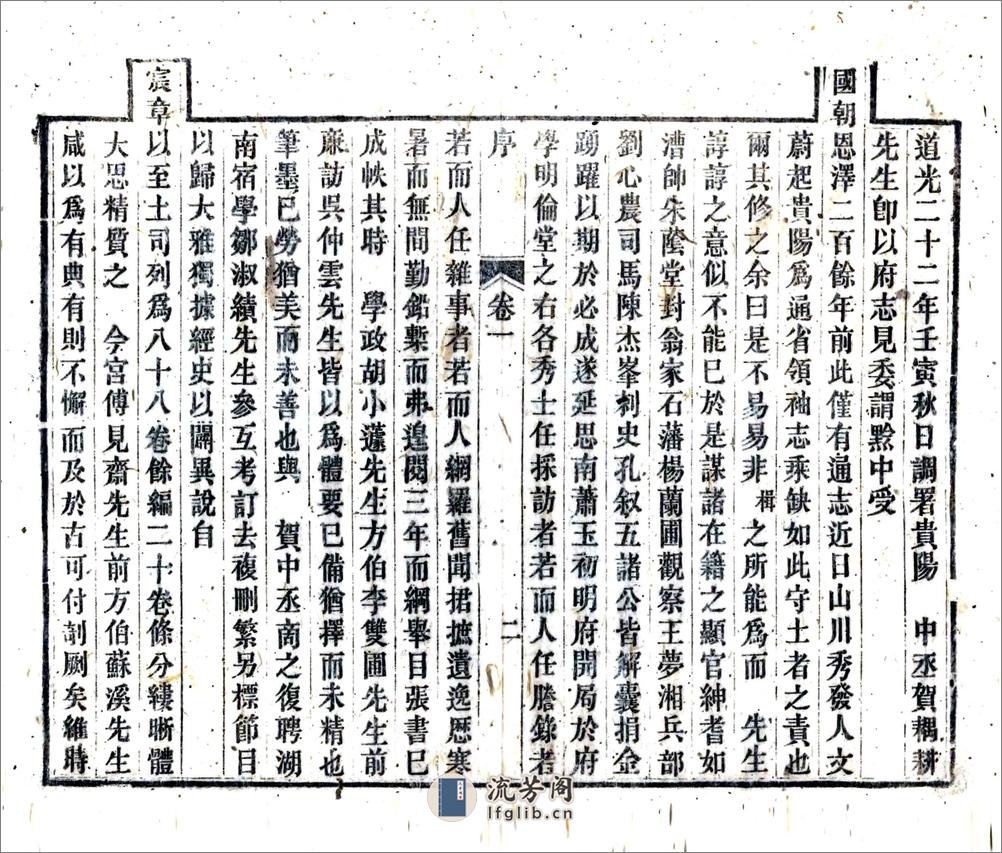 道光二十二年壬寅秋日調署貴陽　中丞賀耦耕
先生卽以府志見委謂黔中受
國朝恩澤二百餘年前此僅有通志近日山川秀發人文
蔚起貴陽爲通省領袖志乘缺如此守土者之責也
爾其修之余曰是不易易非楫之所能爲而　先生
諄諄之意似不能已於是謀諸在籍之顯官紳耆如
漕帥朱蔭堂封翁家石藩楊蘭圃觀察王夢湘兵部
劉心農司馬陳杰峯刺史孔叙五諸公皆解囊捐金
踴躍以期於必成遂延思南蕭玉初明府開局於府
學明倫堂之右各秀士任採訪者若而人任謄錄者
序　卷一　二
若而人任雜事者若而人網羅舊聞捃摭遺逸歷寒
暑而無間勤鉛槧而弗遑閱三年而綱舉目張書已
成帙其時　學政胡小蘧先生方伯李雙圃先生前
廉訪吳仲雲先生皆以爲體要已備猶擇而未精也
筆墨已勞猶美而未善也與　賀中丞商之復聘湖
南宿學鄒淑績先生參互考訂去複刪繁另標節目
以歸大雅獨據經史以闢異說自
宸章以至土司列爲八十八卷餘編二十卷條分縷晰體
大思精質之　今宮傅見齋先生前方伯蘇溪先生
咸以爲有典有則不懈而及於古可付剞劂矣維時
流芳阁
lfglib.cn